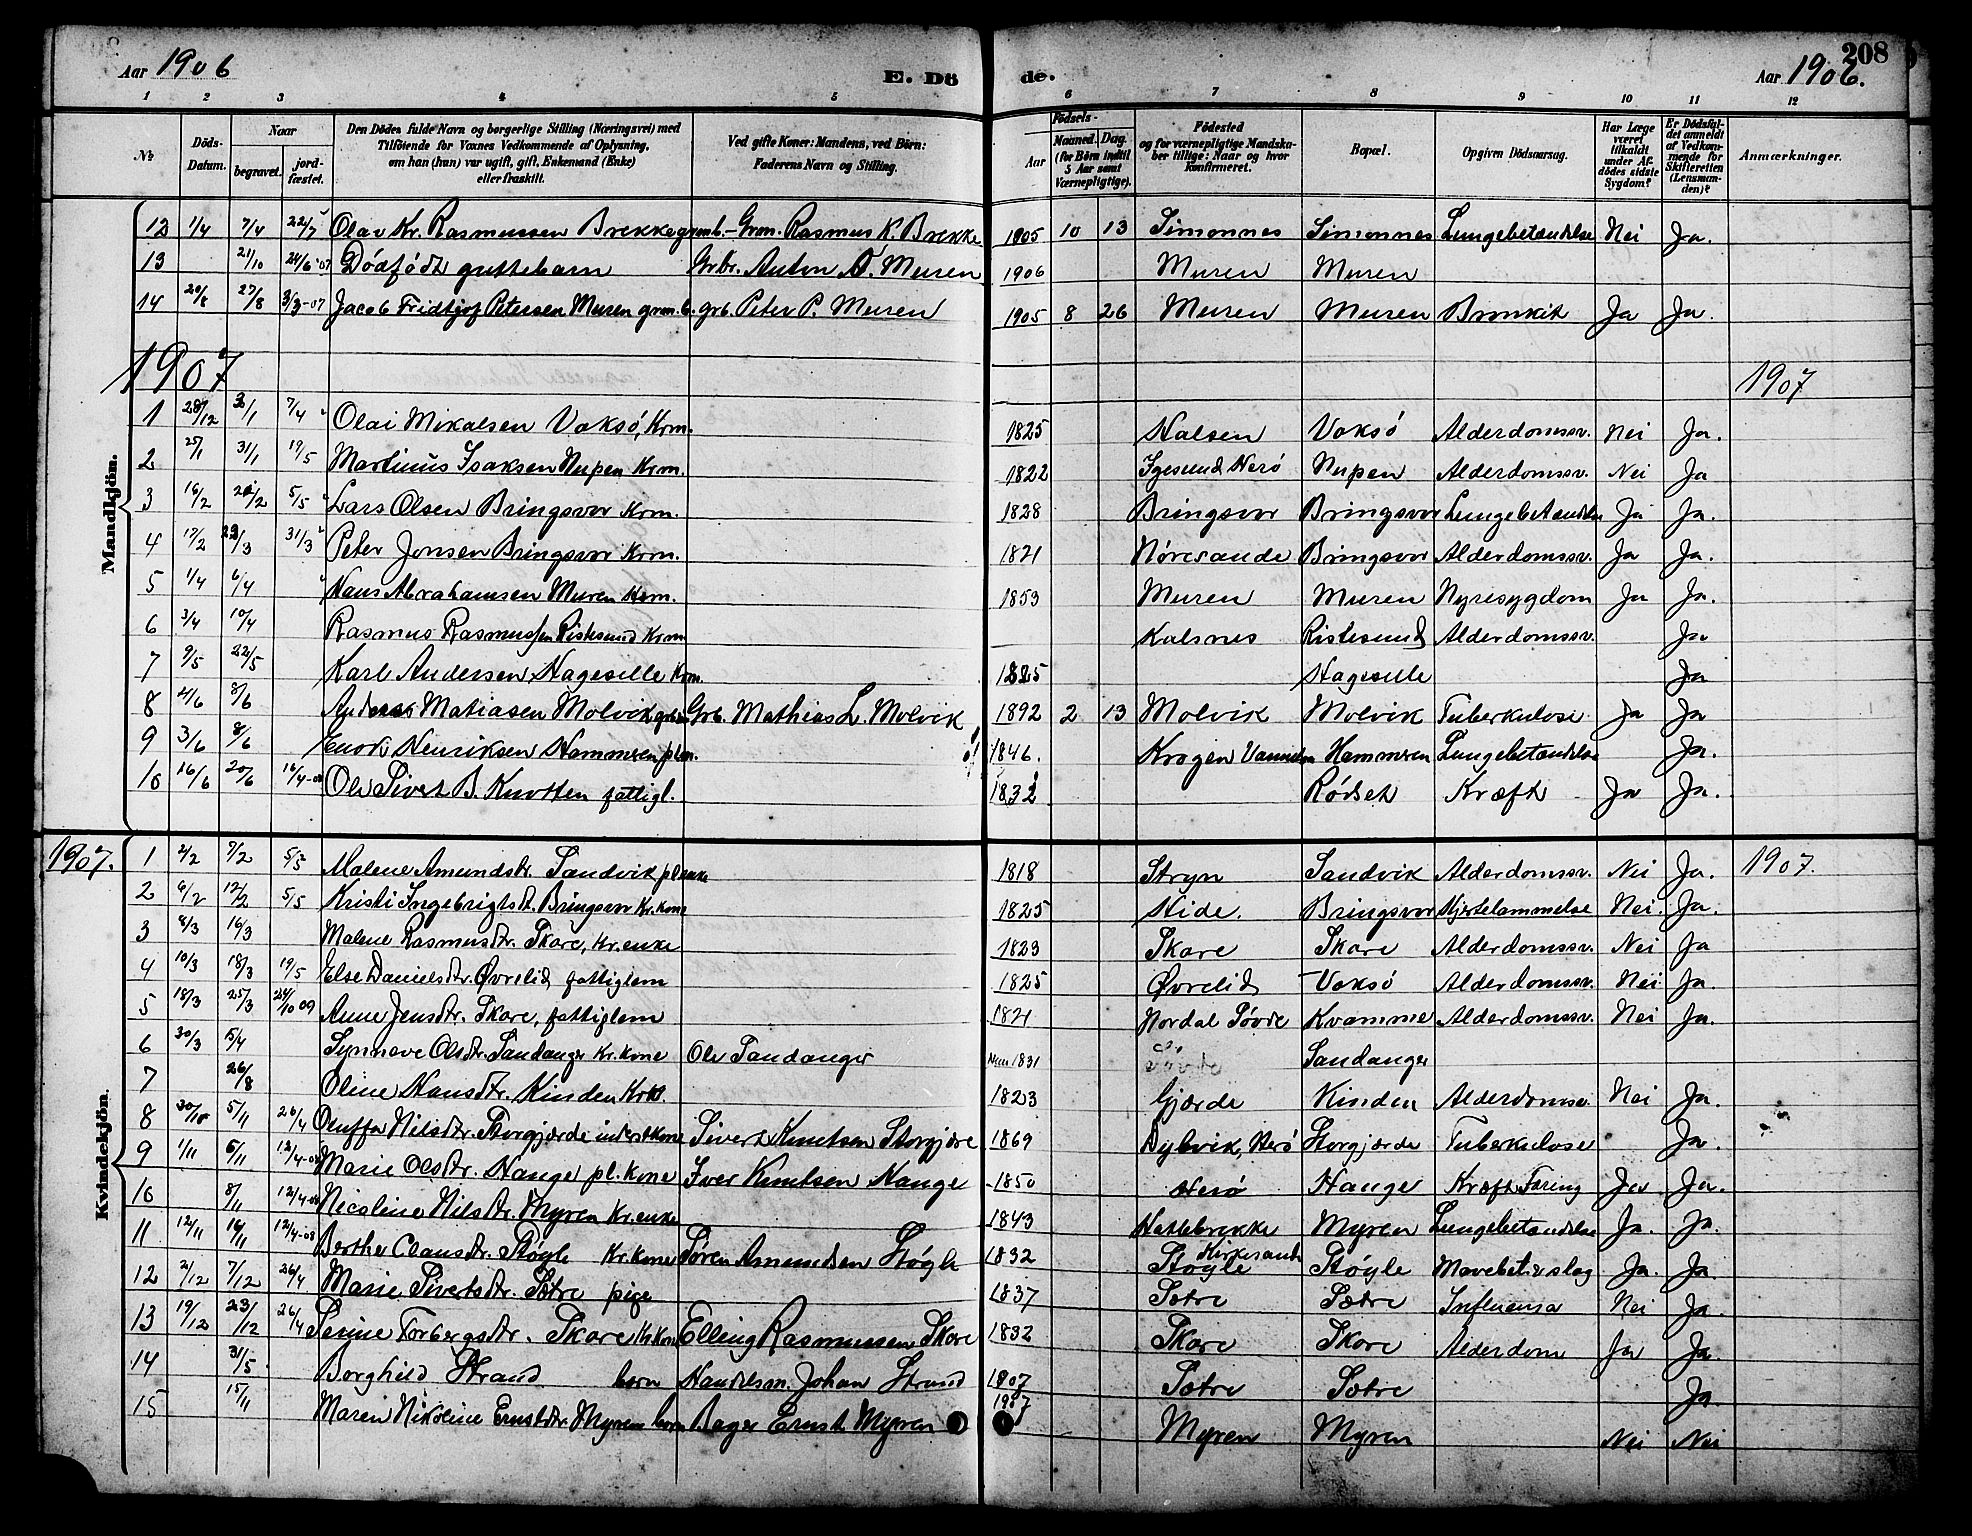 Aar 1906
E. Döde.
Aar 1906.
208
1 2 3 4 5 6 7 8 9 10 11 12
№
Döds-Datum.
Naar
begravet.
jordfæstet.
Den Dödes fulde Navn og borgerlige Stilling (Næringsvei) med Tilföiende for Voxnes Vedkommende af Oplysning, om han (hun) var ugift, gift, Enkemand (Enke) eller fraskilt.
Ved gifte Koner: Mandens, ved Börn: Faderens Navn og Stilling.
Födsels-
Aar
Maaned. Dag.
(for Börn indtil 5 Aar samt Værnepligtige).
Födested og for værnepligtige Mandskaber tillige: Naar og hvor Konfirmeret.
Bopæl.
Opgiven Dödsaarsag.
Har Læge været tilkaldt under Afdödes sidste Sygdom?
Er Dödsfaldet anmeldt af Vedkommende for Skifteretten (Lensmanden)?
Anmærkninger.
Mandkjön.
12 1/4 7/4 22/7 Olav Kr. Rasmussen Brekke grmb. Grm. Rasmus K. Brekke 1905 10 13 Simonnes Simonnes Lungebetændelse Nei Ja.
13 21/10 24/6-07 Dödfödt guttebarn Grbr. Anton O. Muren 1906 Muren Muren
14 20/8 27/8 3/3-07 Jacob Fridtjof Petersen Muren grm.b. grb. Peter P. Muren 1905 8 26 Muren Muren Bronkit Ja Ja.
1907
1907
1 28/12 3/1 7/4 Olai Mikalsen Voksö, Krm. 1825 Halsen Voksö Alderdomssv. Nei Ja.
2 25/1 31/1 19/5 Martinus Isaksen Nupen Krm. 1822 Igesund Herö Nupen Alderdomssv. Nei Ja
3 16/2 26/2 5/5 Lars Olsen Bringsvor Krm. 1828 Bringsvor Bringsvor Lungebetændelse Ja Ja.
4 17/2 23/3 31/3 Peter Jonsen Bringsvor Krm. 1821 Nöresande Bringsvor Alderdomssv. Ja Ja.
5 1/4 6/4 Hans Abrahamsen Muren Krm. 1853 Muren Muren Nyresygdom Ja Ja.
6 3/4 10/4 Rasmus Rasmussen Ristesund Krm Kalsnes Ristesund Alderdomssv. Ja
7 9/5 22/5 Karl Andersen Hageselle Krm. 1825 Hageselle Ja
8 4/6 8/6 Anders Matiasen Molvik Grb. Mathias L. Molvik 1892 2 13 Molvik Molvik Tuberkulose Ja Ja
9 3/6 8/6 Enok Henriksen Hammren plm. 1846. Krogen Hammren Lungebetændelse Ja.
10 16/6 20/6 16/4-08 Ole Sivert B. Knotten fattigl. 1832 Rödset Kræft Ja Ja.
Kvindekjön.
1907.
1907.
1 2/2 7/2 5/5 Malene Amundsdtr. Sandvik pl.enke 1818 Stryn Sandvik Alderdomssv. Nei Ja.
2 6/2 12/2 5/5 Kristi Ingebrigtsdt. Bringsvor Kr.kone 1825 Hide. Bringsvor Hjertelammelse Nei. Ja.
3 8/3 16/3 Malene Rasmusdtr. Skare, Kr.enke 1823 Skare Skare Alderdomssv. Nei Ja
4 10/3 18/3 19/5 Else Danielsdtr. Øvrelid fattiglem 1825 Øvrelid Voksö Alderdomssv. Nei Ja.
5 18/3 25/3 24/10 09 Anne Jensdtr. Skare, fattiglem 1821 Nordal Sövre Kvamme Alderdomssv. Nei Ja.
6 30/3 5/4 Synneve Olsdtr. Sandanger Kr.kone Ole Sandanger 1831 Sandanger
7 26/8 Oline Hansdtr. Kinden 1823 Gjærde Kinden Alderdomsv. Nei Ja.
8 30/10 5/11 26/4 Oluffa Nilsdtr. Storgjærde inderstkone Sivert Knutsen Storgjære 1869 Dybvik, Herö Storgjærde Tuberkulose Ja.
9 1/11 6/11 12/4-08 Marie Olsdtr. Hauge pl. kone Iver Knutsen Hauge 1850 Herö Hauge Kræft Ja Ja.
10 8/11 12/4-08 Nicoline Nilsdtr. Myren Kr.enke 1843 Hattebrekke Myren Lungebetændelse Ja. Ja.
11 12/11 16/11 12/4-08 Berthe Clausdtr. Støyle Kr.kone Søren Amundsen Støyle 1832 Støyle Støyle Ja. Ja.
12 2/12 7/12 26/4 Marie Sivertsdtr. Sætre pige 1837 Sætre Sætre Influensa Nei Ja
13 19/12 23/12 26/4 Serine Torbergsdtr. Skare Kr.kone Elling Rasmussen Skare 1832 Skare Skare Alderdom Ja Ja.
14 31/5 Borghild Strand barn Handelsm. Johan Strand 1907 Sætre Sætre Ja.
15 15/11 Maren Nikoline Ernstdtr. Myren barn Bager Ernst Myren 1907 Myren Myren Nei Nei